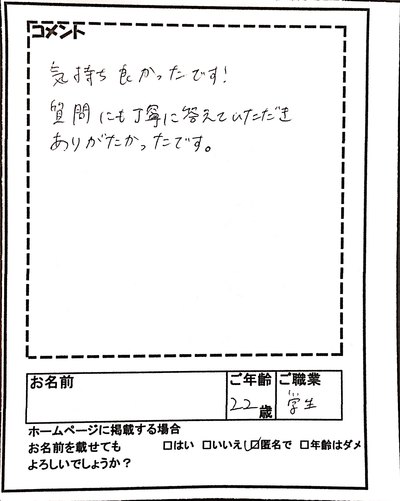 コメント
気持ち良かったです!
質問にも丁寧に答えていただき
ありがたかったです。
お名前 ご年齢 ご職業
22歳 学生
ホームページに掲載する場合
お名前を載せても □はい □いいえ ☑匿名で □年齢はダメ
よろしいでしょうか?